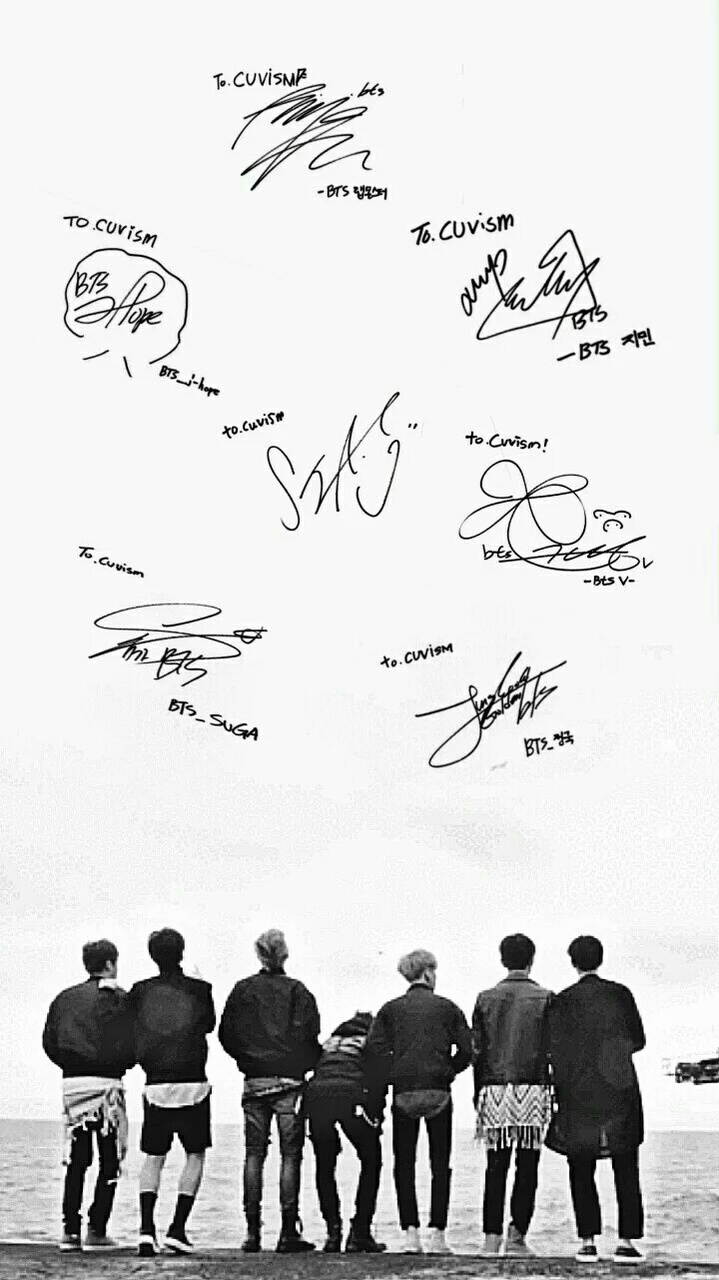 To. CUVISM
bts
-BTS 랩몬스터
TO. CUVISM
BTS
J-Hope
BTS_j-hope
To. CUVISM
BTS
-BTS 지민
to. cuvism
to. Cuvism!
bts
V
-Bts V-
To. Cuvism
BTS
BTS_SUGA
to. CUVISM
Jungkook
Golden
bts
BTS_정국